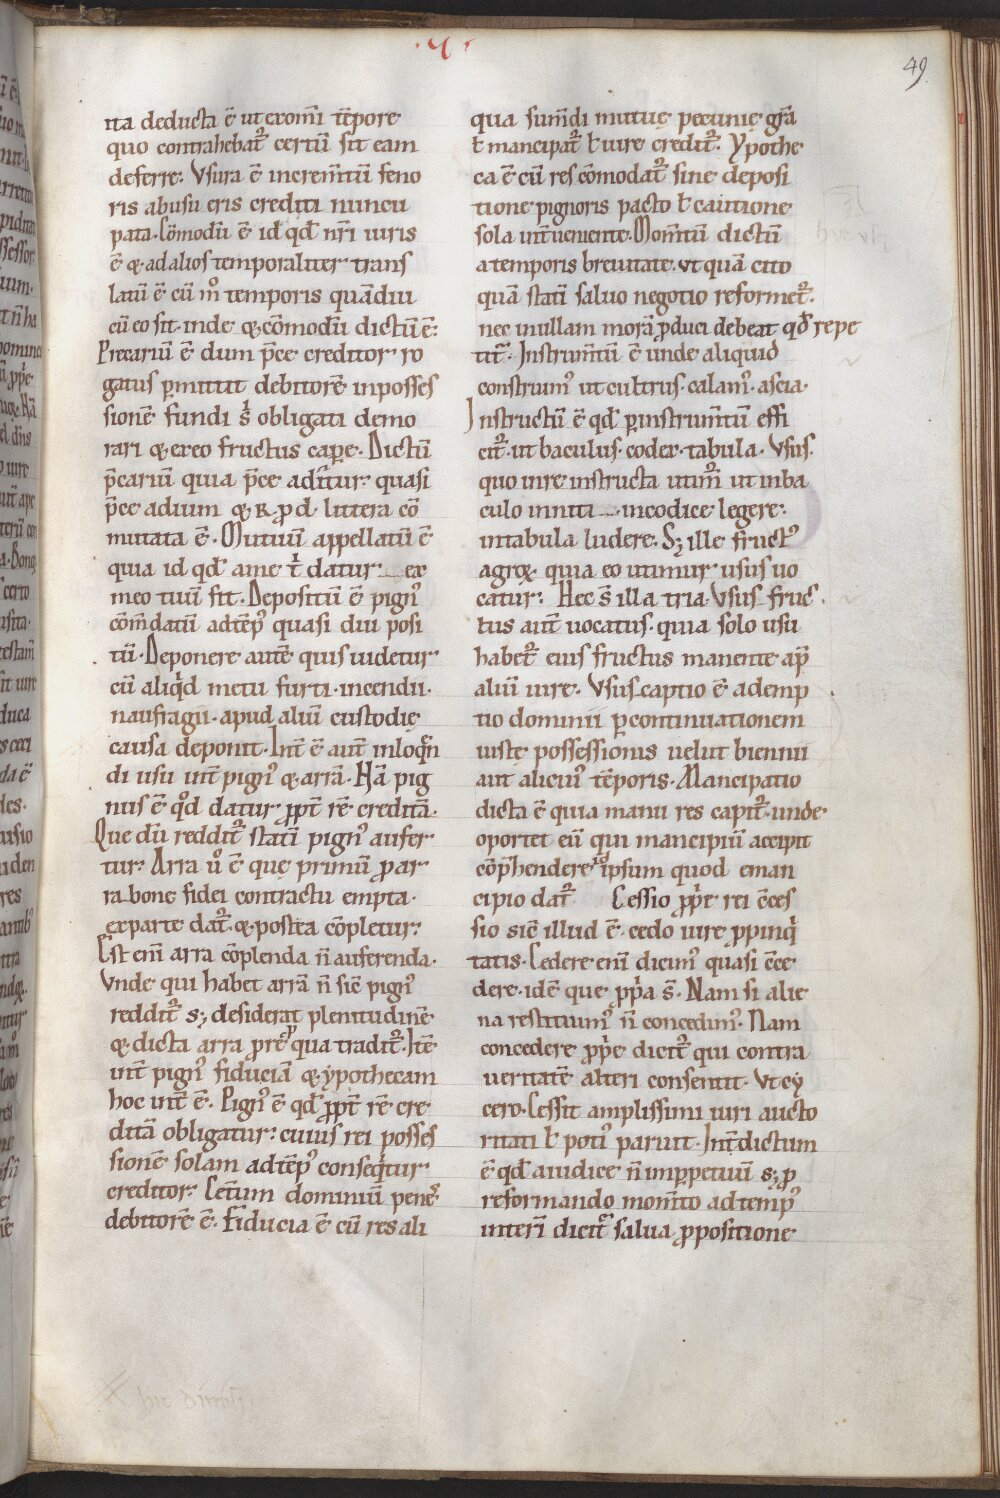 ·V·
49
ita deducta ē ut eom̄i tēpore
quo contrahebat᷑ certū sit eam
deferre. Vsura ē increm̄tū feno
ris abusu eris crediti nuncu
pata. Cōmodū ē id qđ nr̄i iuris
ē & ad alios temporaliter trans
latū ē cū m̊ temporis quādiu
cū eo sit. inde & cōmodū dictū ē.
Precariū ē dum p̄ce creditor ro
gatus p̲mittit debitorē in posses
sionē fundi s᷑ obligati demo
rari & ex eo fructus cap̲e. Dictū
p̄cariū quia p̄ce adit᷑ur quasi
p̄ce adium & R. ꝓ d. littera cō
mutata ē. Mutuū appellatū ē
quia id qđ a me t̍ datur ex
meo tuū fit. Depositū ē pignꝰ
cōm̄datū ad tēpꝰ quasi diu posi
tū. Deponere autē quis uidetur
cū aliq̍d metu furti. incendii.
naufragii. apud aliū custodię
causa deponit. Int̄ ē aut̄ in loq̄n
di usu int̄ pignꝰ & arrā. Nā pig
nus ē qđ datur ꝓpt̄ rē creditā.
Que dū reddit᷑ statū pignꝰ aufer
tur. Arra ů ē que primū ꝓ ar
ra bone fidei contractu empta.
ex parte dat᷑. & postea cōpletur.
Est enī arra cōplenda n̄ auferenda.
Vnde qui habet arrā n̄ sic̄ pignꝰ
reddit᷑ sꝫ desiderat plenitudinē
& dicta arra ꝓ rē ꝓ qua tradit᷑. Itē
int̄ pignꝰ fiduciā & ypothecam
hoc int̄ ē. Pignꝰ ē qđ ꝓpt̄ rē cre
ditā obligatur. cuius rei posses
sionē solam ad tēpꝰ conseq̍tur
creditor. Cet̄um dominiū penesꝰ
debitorē ē. Fiducia ē cū res ali
qua sum̄di mutuę pecunię gr̄a
ł mancipat᷑ ł iure credit᷑. Ypothe
ca ē cū res cōmodat᷑ sine deposi
tione pignoris pacto ł cautione
sola int̄ueniente. Mom̄tū dictū
a temporis breuitate. ut quā cito
quā statī saluo negotio reformet᷑.
nec in ullam morā ꝓduci debeat qđ repe
tit᷑. Instrum̄tū ē unde aliquid
construimꝰ ut cultrus. calamꝰ. ascia.
Instructū ē qđ p̲ instrum̄tū effi
cit᷑. ut baculus. codex. tabula. Vsus.
quo in re instructa utim᷑ ut in ba
culo inniti in codice legere.
in tabula ludere. Sꝫ ille fructꝰ
agroꝝ quia eo utimur usus uo
catur. Hec s̄ illa tria. Vsus fruc
tus aut̄ uocatus. quia solo usu
habet᷑ eius fructus manente ap̲
aliū iure. Vsus captio ē ademp
tio dominii p̲ continuationem
iustę possessionis uelut biennii
aut alicuiꝰ tēporis. Mancipatio
dicta ē quia manu res capit᷑. unde
oportet eū qui mancipiū accipit
cōp̄hendere ipsum quod eman
cipio dat᷑. Cessio ꝓp̍e rei c̄ces
sio sic̄ illud ē. cedo iure ꝓpinq̍
tatis. Cedere enī dicimꝰ quasi c̄ce
dere. id ē que ꝓp̍a s̄. Nam si alie
na restituimꝰ n̄ concedimꝰ. Nam
concedere ꝓp̍e dicit᷑ qui contra
ueritatē alteri consentit. Vt cy
cero. Cessit amplissimi iuri aucto
ritati ł potiꝰ paruit. Int̄dictum
ē qđ a iudice n̄ in p̲petuū sꝫ ꝓ
reformando mom̄to ad tempꝰ
interī dicit᷑ salua ꝓpositione